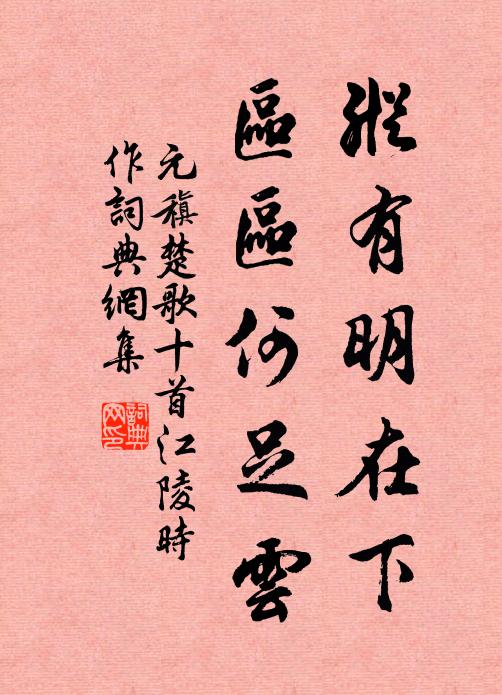 縱有明在下
區區何足雲
元稹楚歌十首江陵時
作詞典網集
詞典
网印